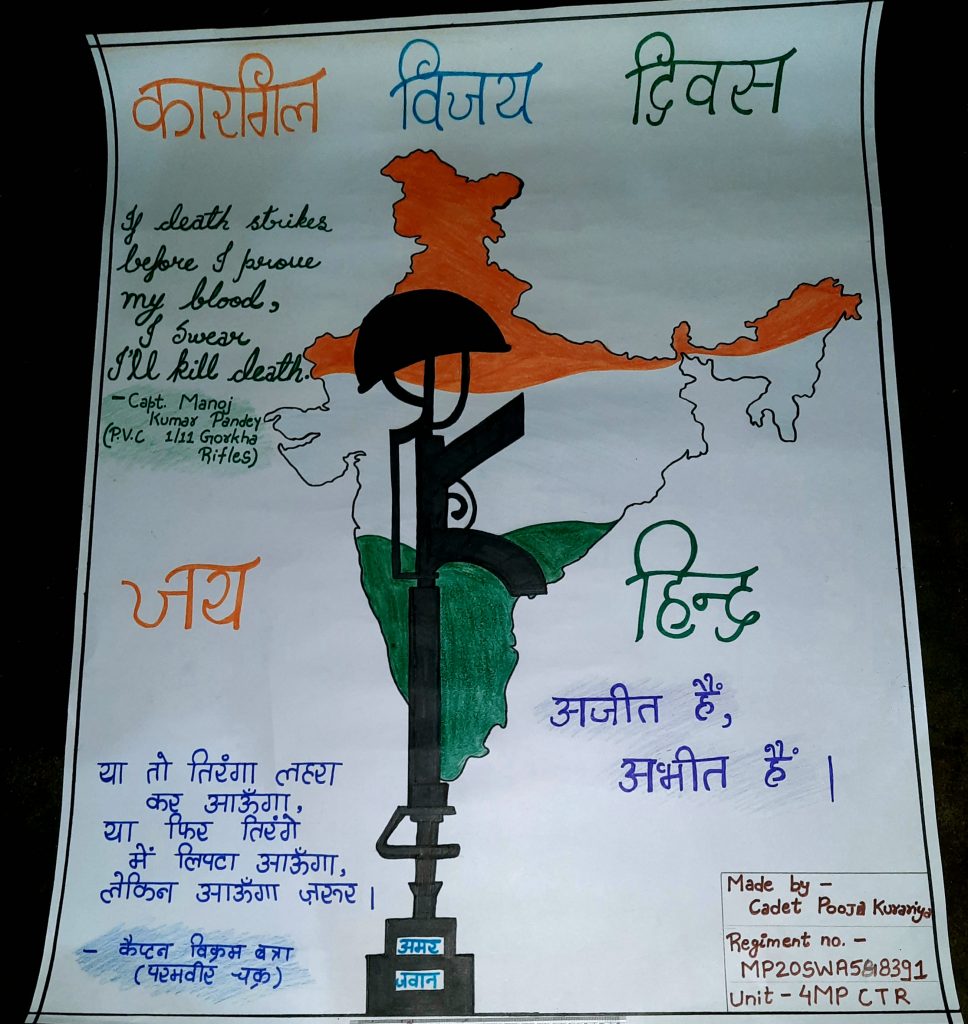 कारगिल विजय दिवस
If death strikes
before I prove
my blood,
I swear
I'll kill death.
- Capt. Manoj
Kumar Pandey
(P.V.C 1/11 Gorkha
Rifles)
जय हिन्द
अजीत हैं,
अभीत हैं |
या तो तिरंगा लहरा
कर आऊँगा,
या फिर तिरंगे
में लिपटा आऊँगा,
लेकिन आऊँगा ज़रूर |
- कैप्टन विक्रम बत्रा
(परमवीर चक्र)
अमर
जवान
Made by -
Cadet Pooja Kurariya
Regiment no. -
Unit - 4MP CTR